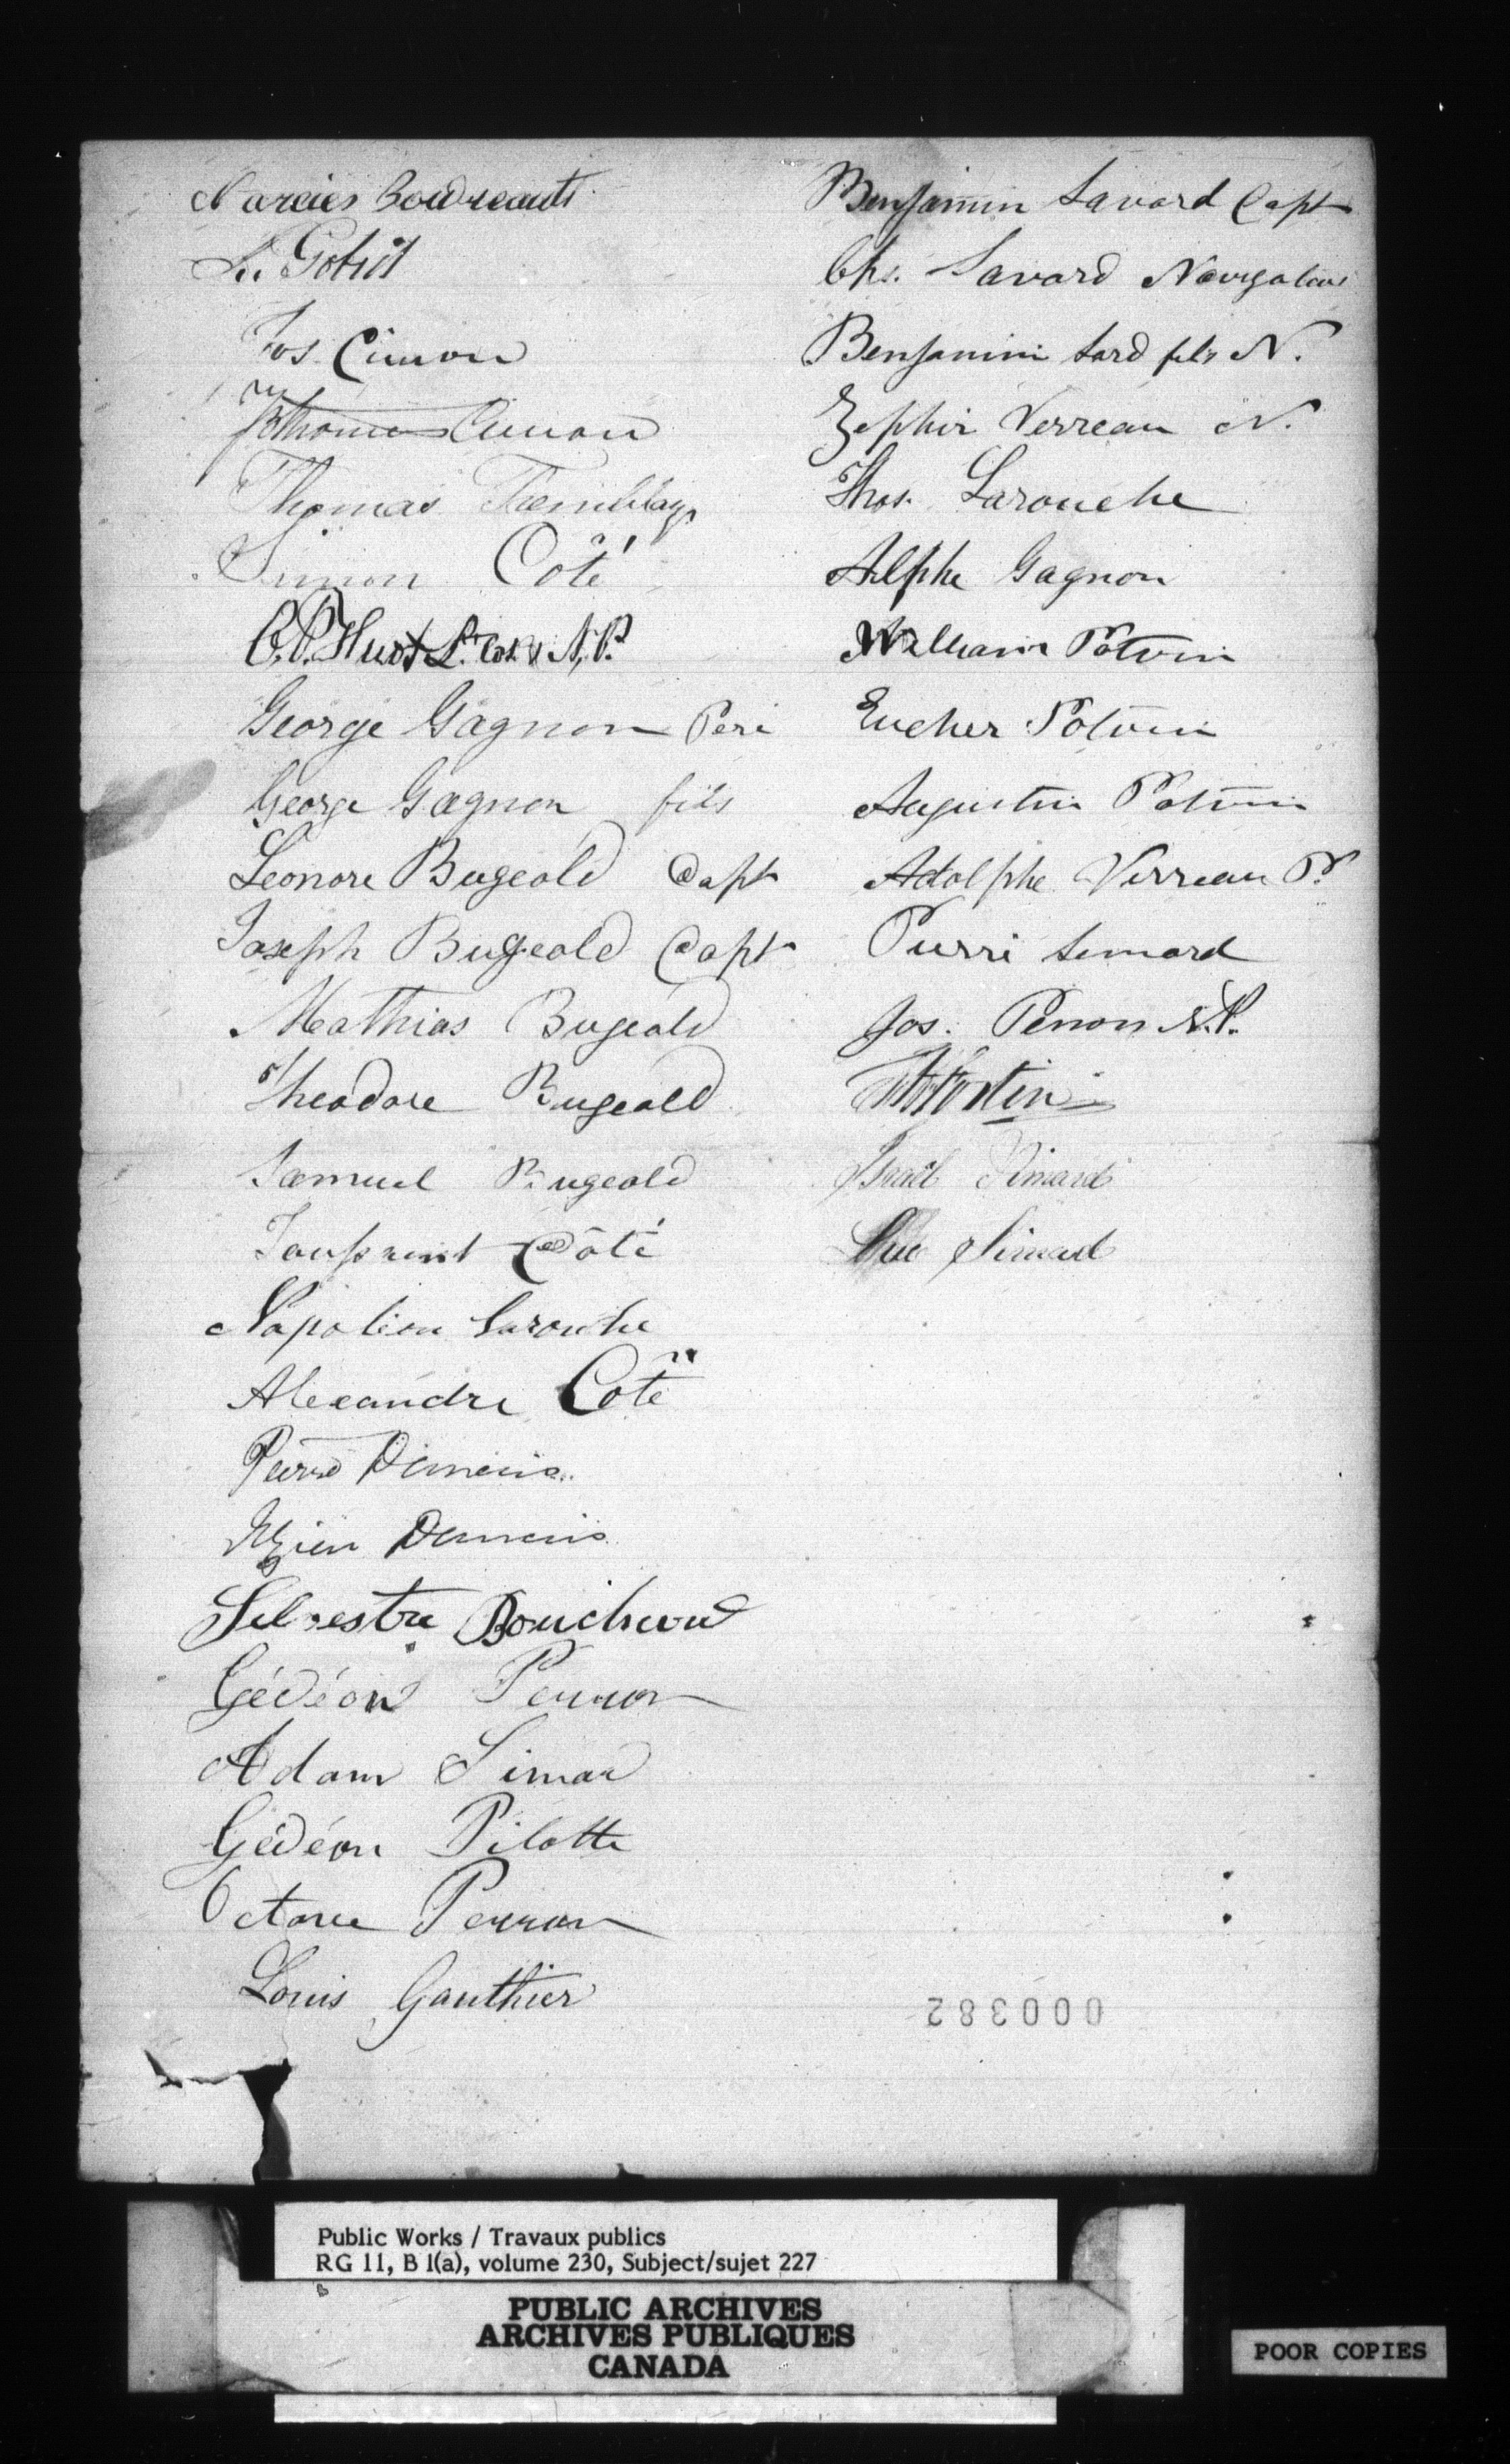 Narcies Boudreault
L. Gobeil
Jos Cimon
Cimon
Thomas Tremblay
Simon Côté
C. P. Huot L. Col. & N. P.
George Gagnon Peri
George Gagnon fils
Leonore Bugeold Capt
Joseph Bugeold Capt
Mathias Bugeold
Theodore Bugeold
Samuel Bugeold
Toussaint Côté
Napoleon Larouche
Alexandre Côté
Pierre Dimeuis
Dameuis
Silvestre Bouchard
Gédéon Perron
Adam Simar
Gédéon Pilotte
Octave Perron
Louis Gauthier
Benjamin Savard Capt
Chs. Savard Navigateur
Benjamin Sard fils N.
Zephir Verreau N.
Thos. Larouche
Alphe Gagnon
William Potvin
Eucher Potvin
Augustin Potvin
Adolphe Verreau P.
Pierri Simard
Jos. Perron N.P.
Fortin
Israël Simard
Luc Simard
000382
Public Works / Travaux publics
RG 11, B 1(a), volume 230, Subject/sujet 227
PUBLIC ARCHIVES
ARCHIVES PUBLIQUES
CANADA
POOR COPIES